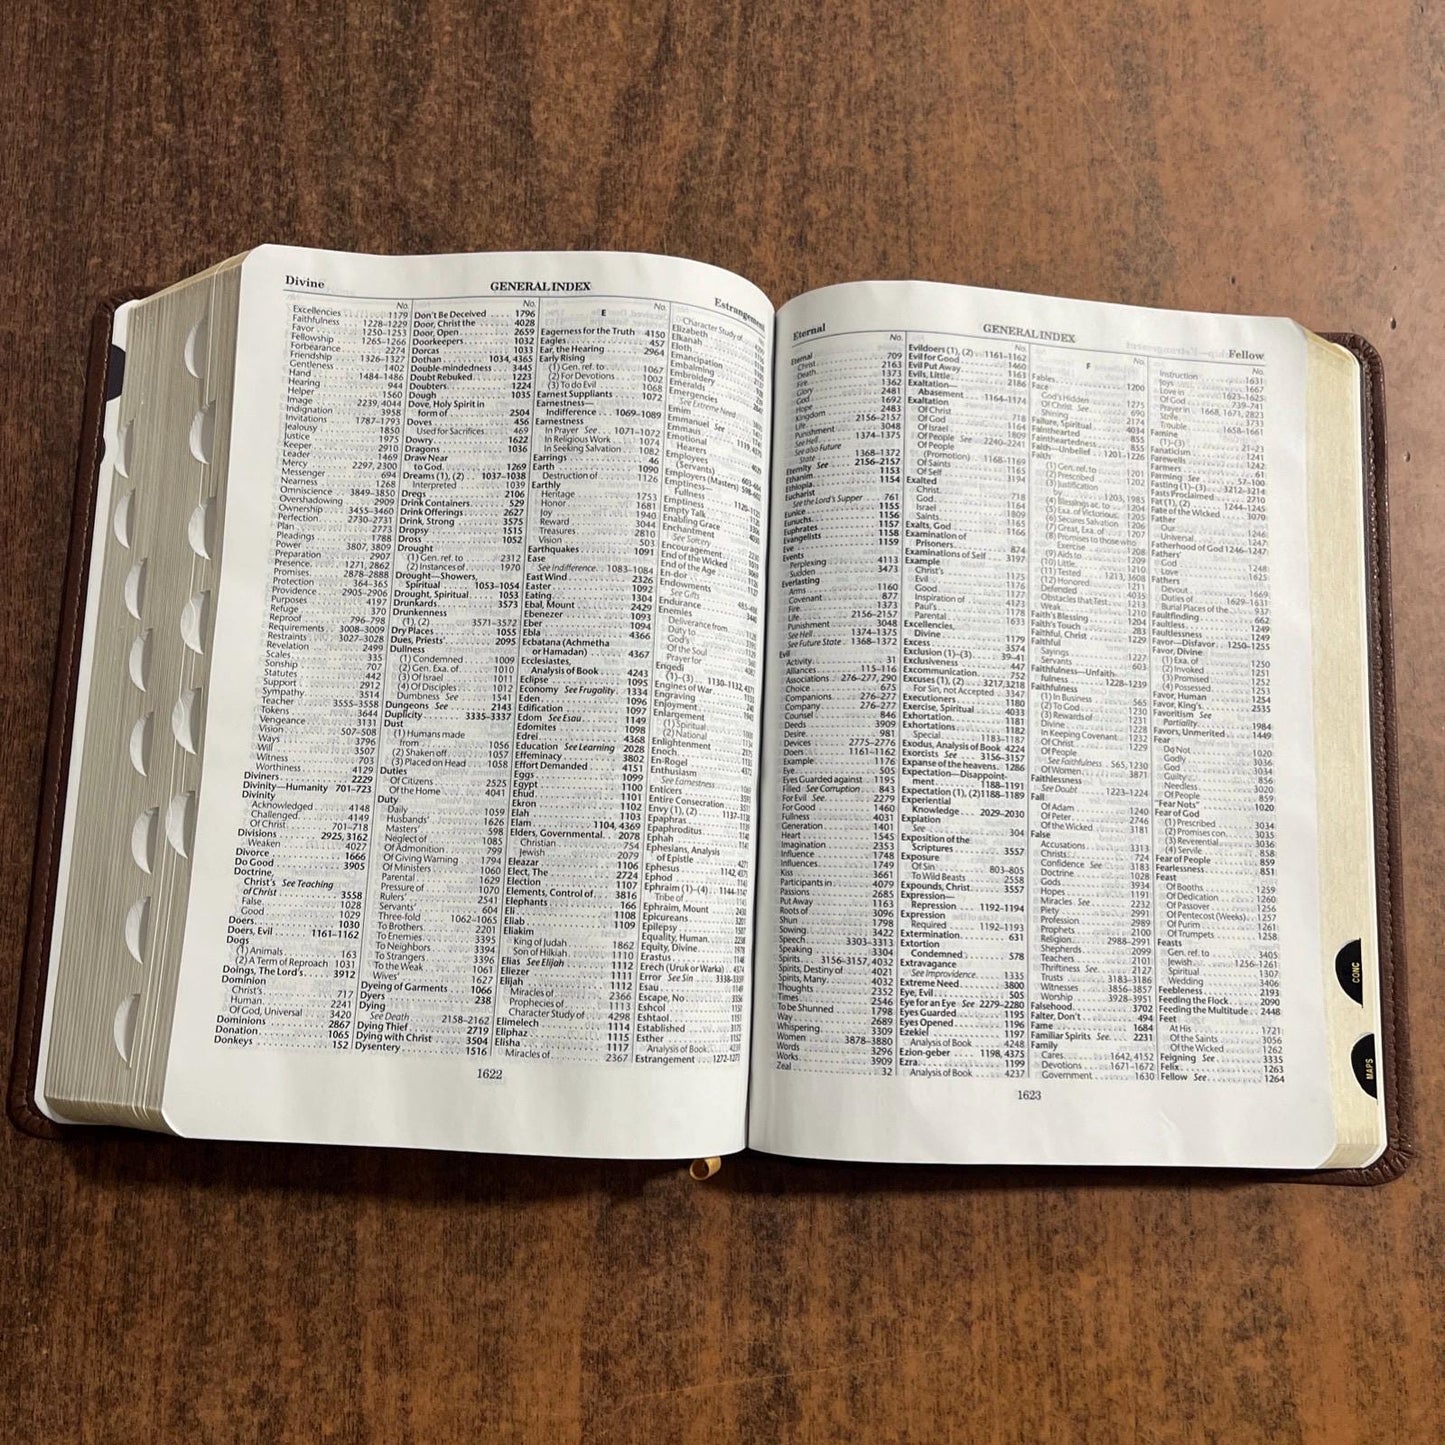 Divine
GENERAL INDEX
Estrangement
No.
Excellencies 1179
Faithfulness 1228–1229
Favor 1250–1253
Fellowship 1265–1266
Forbearance 2274
Friendship 1326–1327
Gentleness 1402
Hand 1484–1486
Hearing 944
Helper 1560
Image 2239, 4044
Indignation 3958
Invitations 1787–1793
Jealousy 1850
Justice 1975
Keeper 2910
Leader 1469
Mercy 2297, 2300
Messenger 694
Nearness 1268
Omniscience 3849–3850
Overshadowing 2909
Ownership 3455–3460
Perfection 2730–2731
Plan 2773
Pleadings 1788
Power 3807, 3809
Preparation 2907
Presence 1271, 2862
Promises 2878–2888
Protection 364–365
Providence 2905–2906
Purposes 4197
Refuge
Reproof 796–798
Requirements 3008–3009
Restraints 3027–3028
Revelation 2499
Scales 335
Sonship 707
Statutes 442
Support 2912
Sympathy 3514
Teacher 3555–3558
Tokens 3644
Vengeance 3131
Vision 507–508
Ways 3796
Will 3507
Witness 703
Worthiness 4129
Diviners 2229
Divinity—Humanity 701–723
Divinity
Acknowledged 4148
Challenged 4149
Of Christ 701–718
Divisions 2925, 3162
Weaken 4027
Divorce 1666
Do Good 3905
Doctrine,
Christ's See Teaching
of Christ 3558
False 1028
Good 1029
Doers 1030
Doers, Evil 1161–1162
Dogs
(1) Animals 163
(2) A Term of Reproach 1031
Doings, The Lord's 3912
Dominion
Christ's 717
Human 2241
Of God, Universal 3420
Dominions 2867
Donation 1065
Donkeys 152
No.
Don't Be Deceived 1796
Door, Christ the 4028
Door, Open 2659
Doorkeepers 1032
Dorcas 1033
Dothan 1034, 4365
Double-mindedness 3445
Doubt Rebuked 1223
Doubters 1224
Dough 1035
Dove, Holy Spirit in
form of 2504
Doves 456
Used for Sacrifices 469
Dowry 1622
Dragons 1036
Draw Near
to God 1269
Dreams (1), (2) 1037–1038
Interpreted 1039
Dregs 2106
Drink Containers 529
Drink Offerings 2627
Drink, Strong 3575
Dropsy 1515
Dross 1052
Drought
(1) Gen. ref. to 2312
(2) Instances of 1970
Drought—Showers,
Spiritual 1053–1054
Drought, Spiritual 1053
Drunkards 3573
Drunkenness
(1), (2) 3571–3572
Dry Places 1055
Dues, Priests' 2095
Dullness
(1) Condemned 1009
(2) Gen. Exa. of 1010
(3) Of Israel 1011
(4) Of Disciples 1012
Dumbness See 1541
Dungeons See 2143
Duplicity 3335–3337
Dust
(1) Humans made
from 1056
(2) Shaken off 1057
(3) Placed on Head 1058
Duties
Of Citizens 2525
Of the Home 4041
Duty
Daily 1059
Husbands' 1626
Masters' 598
Neglect of 1085
Of Admonition 799
Of Giving Warning 1794
Of Ministers 1060
Parental 1629
Pressure of 1070
Rulers' 2541
Servants' 604
Three-fold 1062–1065
To Brothers 2201
To Enemies 3395
To Neighbors 3394
To Strangers 3396
To the Weak 1061
Wives' 1627
Dyeing of Garments 1066
Dyers 238
Dying
See Death 2158–2162
Dying Thief 2719
Dying with Christ 3504
Dysentery 1516
No.
E
Eagerness for the Truth 4150
Eagles 457
Ear, the Hearing 2964
Early Rising
(1) Gen. ref. to 1067
(2) For Devotions 1002
(3) To do Evil 1068
Earnest Suppliants 1072
Earnestness—
Indifference 1069–1089
Earnestness
In Prayer See 1071–1072
In Religious Work 1074
In Seeking Salvation 1082
Earrings 46
Earth 1090
Destruction of 1126
Earthly
Heritage 1753
Honor 1681
Joy 1940
Reward 3044
Treasures 2810
Vision 503
Earthquakes 1091
Ease
See Indifference 1083–1084
East Wind 2326
Easter 1092
Eating 1304
Ebal, Mount 2429
Ebenezer 1093
Eber 1094
Ebla 4366
Ecbatana (Achmetha
or Hamadan) 4367
Ecclesiastes,
Analysis of Book 4243
Eclipse 1095
Economy See Frugality 1334
Eden 1096
Edification 1097
Edom See Esau 1149
Edomites 1098
Edrei 4368
Education See Learning 2028
Effeminacy 3802
Effort Demanded 4151
Eggs 1099
Egypt 1100
Ehud 1101
Ekron 1102
Elah 1103
Elam 1104, 4369
Elders, Governmental 2078
Christian 754
Jewish 2079
Eleazar 1106
Elect, The 2724
Election 1107
Elements, Control of 3816
Elephants 166
Eli 1108
Eliab 1109
Eliakim
King of Judah 1862
Son of Hilkiah 1110
Elias See Elijah 1112
Eliezer 1111
Elijah 1112
Miracles of 2366
Prophecies of 1113
Character Study of 4298
Elimelech 1114
Eliphaz 1115
Elisha 1117
Miracles of 2367
Character Study of
Elizabeth
Elkanah
Eloth
Emancipation
Embalming
Embroidery
Emeralds
Emergencies
See Extreme Need
Emim
Emmanuel See
Emmaus
Emotional
Hearers
Employees
(Servants)
Employers (Masters)
Emptiness—
Fullness
Emptiness
Empty Talk
Enabling Grace
Enchantment
See Sorcery
Encouragement
End of the Wicked
End of the Age
En-dor
Endowments
See Gifts
Endurance
Enemies
Deliverance from
Duty to
God's
Of the Soul
Prayer for
Engedi
(1)–(3) 1130–1132, 4371
Engines of War
Engraving
Enjoyment
Enlargement
(1) Spiritual
(2) National
Enlightenment
Enoch
En-Rogel
Enthusiasm
See Earnestness
Enticers
Entire Consecration
Envy (1), (2) 1137–1138
Epaphras
Epaphroditus
Ephah
Ephesians, Analysis
of Epistle
Ephesus
Ephod
Ephraim (1)–(4) 1144–1147
Tribe of
Ephraim, Mount
Epicureans
Epilepsy
Equality, Human
Equity, Divine
Erastus
Erech (Uruk or Warka)
Error See Sin 3338–3339
Esau
Escape, No
Eshcol
Established
Esther
Analysis of Book
Estrangement 1272–1273
1622
Eternal
GENERAL INDEX
Fellow
No.
Eternal 709
Christ 2163
Death 1373
Fire 1362
Glory 2481
God 1692
Hope 2483
Kingdom 2156–2157
Life
Punishment 3048
See Hell 1374–1375
See also Future
State 1368–1372
Eternity See 2156–2157
Ethanim 1153
Ethiopia 1154
Eucharist
See the Lord's Supper 761
Eunice 1155
Eunuchs 1156
Euphrates 1157
Evangelists 1158
Eve 1159
Events
Perplexing 4113
Sudden 3473
Everlasting
Arms 1160
Covenant 877
Fire 1373
Life 2156–2157
Punishment 3048
See Hell 1374–1375
See Future State 1368–1372
Evil
Activity 31
Alliances 115–116
Associations 276–277, 290
Choice 675
Companions 276–277
Company 276–277
Counsel 846
Deeds 3909
Desire 981
Devices 2775–2776
Doers 1161–1162
Example 1176
Eye 505
Eyes Guarded against 1195
Filled See Corruption 843
For Evil See 2279
For Good 1460
Fullness 4031
Generation 1401
Heart 1545
Imagination 2353
Influence 1748
Influences 1749
Kiss 3661
Participants in 4079
Passions 2685
Put Away 1163
Roots of 3096
Shun 1798
Sowing 3422
Speech 3303–3313
Speaking 3304
Spirits 3156–3157, 4032
Spirits, Destiny of 4021
Spirits, Many 4032
Thoughts 2352
Times 2546
To be Shunned 1798
Way 2689
Whispering 3309
Women 3878–3880
Words 3296
Works 3909
Zeal 32
No.
Evildoers (1), (2) 1161–1162
Evil for Good 1460
Evil Put Away 1163
Evils, Little 2186
Exaltation—
Abasement 1164–1174
Exaltation
Of Christ
Of God 718
Of Israel 1164
Of People See 1809
Of People 2240–2241
(Promotion)
Of Saints 1168–1169
Of Self 1165
Exalted 3194
Christ
God 718
Israel 1164
Saints 1809
Exalts, God 1165
Examination of 1166
Prisoners 874
Examinations of Self 3197
Example
Christ's 1175
Evil 1176
Good 1177
Inspiration of 4123
Paul's 1178
Parental 1633
Excellencies,
Divine 1179
Excess 3574
Exclusion (1)–(3) 39–41
Exclusiveness 447
Excommunication 752
Excuses (1), (2) 3217, 3218
For Sin, not Accepted 3347
Executioners 1180
Exercise, Spiritual 4033
Exhortation 1181
Exhortations 1182
Special 1183–1182
Exodus, Analysis of Book 4224
Exorcists See 3156–3157
Expanse of the heavens 1286
Expectation—Disappoint-
ment 1188–1191
Expectation (1), (2) 1188–1189
Experiential
Knowledge 2029–2030
Expiation
See 304
Exposition of the
Scriptures 3557
Exposure
Of Sin 803–805
To Wild Beasts 2558
Expounds, Christ 3557
Expression—
Repression 1192–1194
Expression
Required 1192–1193
Extermination 631
Extortion
Condemned 578
Extravagance
See Improvidence 1335
Extreme Need 3800
Eye, Evil 505
Eye for an Eye See 2279–2280
Eyes Guarded 1195
Eyes Opened 1196
Ezekiel 1197
Analysis of Book 4248
Ezion-geber 1198, 4375
Ezra 1199
Analysis of Book 4237
F
Fables 1200
Face
God's Hidden 1275
Of Christ See 690
Shining 4036
Failure, Spiritual 4034
Fainthearted 855
Faintheartedness 855
Faith—Unbelief 1201–1226
Faith
(1) Gen. ref. to 1201
(2) Prescribed 1202
(3) Justification
by 1203, 1985
(4) Blessings of
(5) Exa. of Victorious 1205
(6) Secures Salvation 1206
(7) Great, Exa. of 1207
(8) Promises to those who
Exercise 1208
(9) Aids to 1209
(10) Little 1210
(11) Tested 1213, 3608
(12) Honored 1211
Defended 4035
Obstacles that Test 1213
Weak 1210
Faith's Blessing 1204
Faith's Touch 283
Faithful, Christ 1229
Faithful
Sayings 1227
Servants 603
Faithfulness—Unfaith-
fulness 1228–1239
Faithfulness
(1) In Business 565
(2) To God 1230
(3) Rewards of 1231
Divine 1228
In Keeping Covenant 1232
Of Christ 1229
Of People
See Faithfulness 565, 1230
Of Women 3871
Faithlessness
See Doubt 1223–1224
Fall
Of Adam 1240
Of Peter 2746
Of the Wicked 3181
False
Accusations 3313
Christs 724
Confidence See 3183
Doctrine 1028
Gods 3934
Hopes 1191
Miracles See 2232
Piety 2991
Profession 2989
Prophets 2100
Religion 2988–2991
Shepherds 2099
Teachers 1010
Thriftiness See 2127
Trusts 3183–3186
Witnesses 3856–3857
Worship 3928–3951
Falsehood 3702
Falter, Don't 494
Fame 1684
Familiar Spirits See 2231
Family
Cares 1642, 4152
Devotions 1671–1672
Government 1630
No.
Instruction 1631
Joys 1667
Love in 1623–1625
Of God 739–741
Prayer in 1668, 1671, 2823
Strife 3733
Trouble 1658–1661
Famine
(1)–(3) 21–23
Fanaticism 1241
Farewells 1242
Farmers 61
Farming See 57–100
Fasting (1)–(3) 3212–3214
Fasts Proclaimed 2710
Fat (1), (2) 1244–1245
Fate of the Wicked 3070
Father
Our
Universal
Fatherhood of God 1246–1247
Father
God 1248
Love 1625
Fathers
Devout 1669
Duties of 1629–1631
Burial Places of the 937
Faultfinding 662
Faultless 1249
Faultlessness 1249
Favor—Disfavor 1250–1255
Favor, Divine
(1) Exa. of 1250
(2) Invoked 1251
(3) Promised 1252
(4) Possessed 1253
Favor, Human 1254
Favor, King's 2535
Favoritism See
Partiality 1984
Favors, Unmerited 1449
Fear
Do Not 1020
Godly 3036
God 3034
Guilty 856
Needless 857
Of People 859
"Fear Nots" 1020
Fear of God
(1) Prescribed 3034
(2) Promises con. 3035
(3) Reverential 3036
(4) Servile 858
Fear of People 859
Fearlessness 851
Feast
Of Booths 1259
Of Dedication 1260
Of Passover 1256
Of Pentecost (Weeks) 1257
Of Purim 1261
Of Trumpets 1258
Feasts
Gen. ref. to 3405
Jewish 1256–1261
Spiritual 1307
Wedding 3406
Feebleness 2193
Feeding the Flock 2090
Feeding the Multitude 2448
Feet
At His 1721
Of the Saints 3056
Of the Wicked 1262
Feigning See 3335
Felix 1263
Fellow See 1264
1623
CONC
MAPS